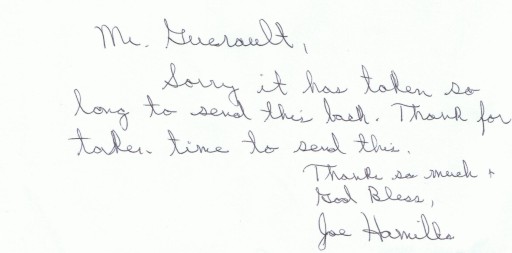 Mr. Guerault,
Sorry it has taken so
long to send this back. Thank for
taken time to send this.
Thanks so much +
God Bless,
Joe Hamilla